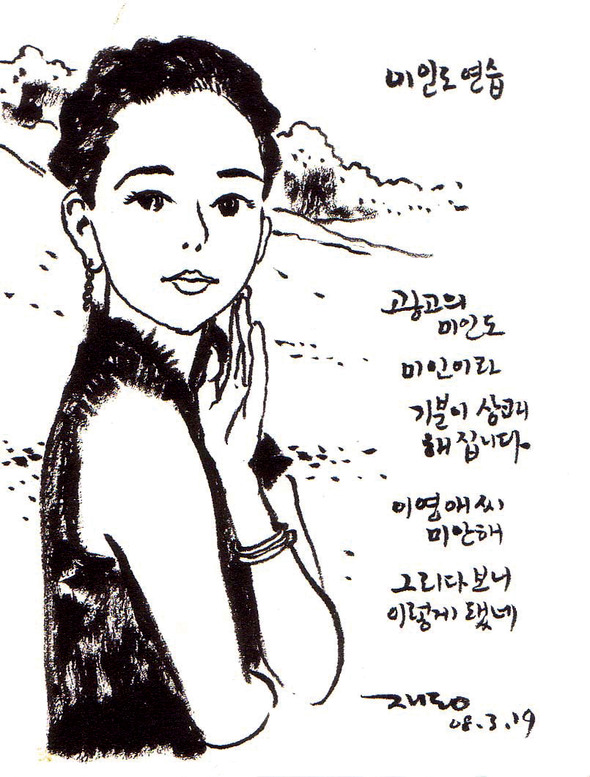 미인도 연습
광고의
미인도
미인이라
기분이 상쾌
해 집니다.
이영애 씨
미안해
그리다 보니
이렇게 됐네
재동
08.3.19